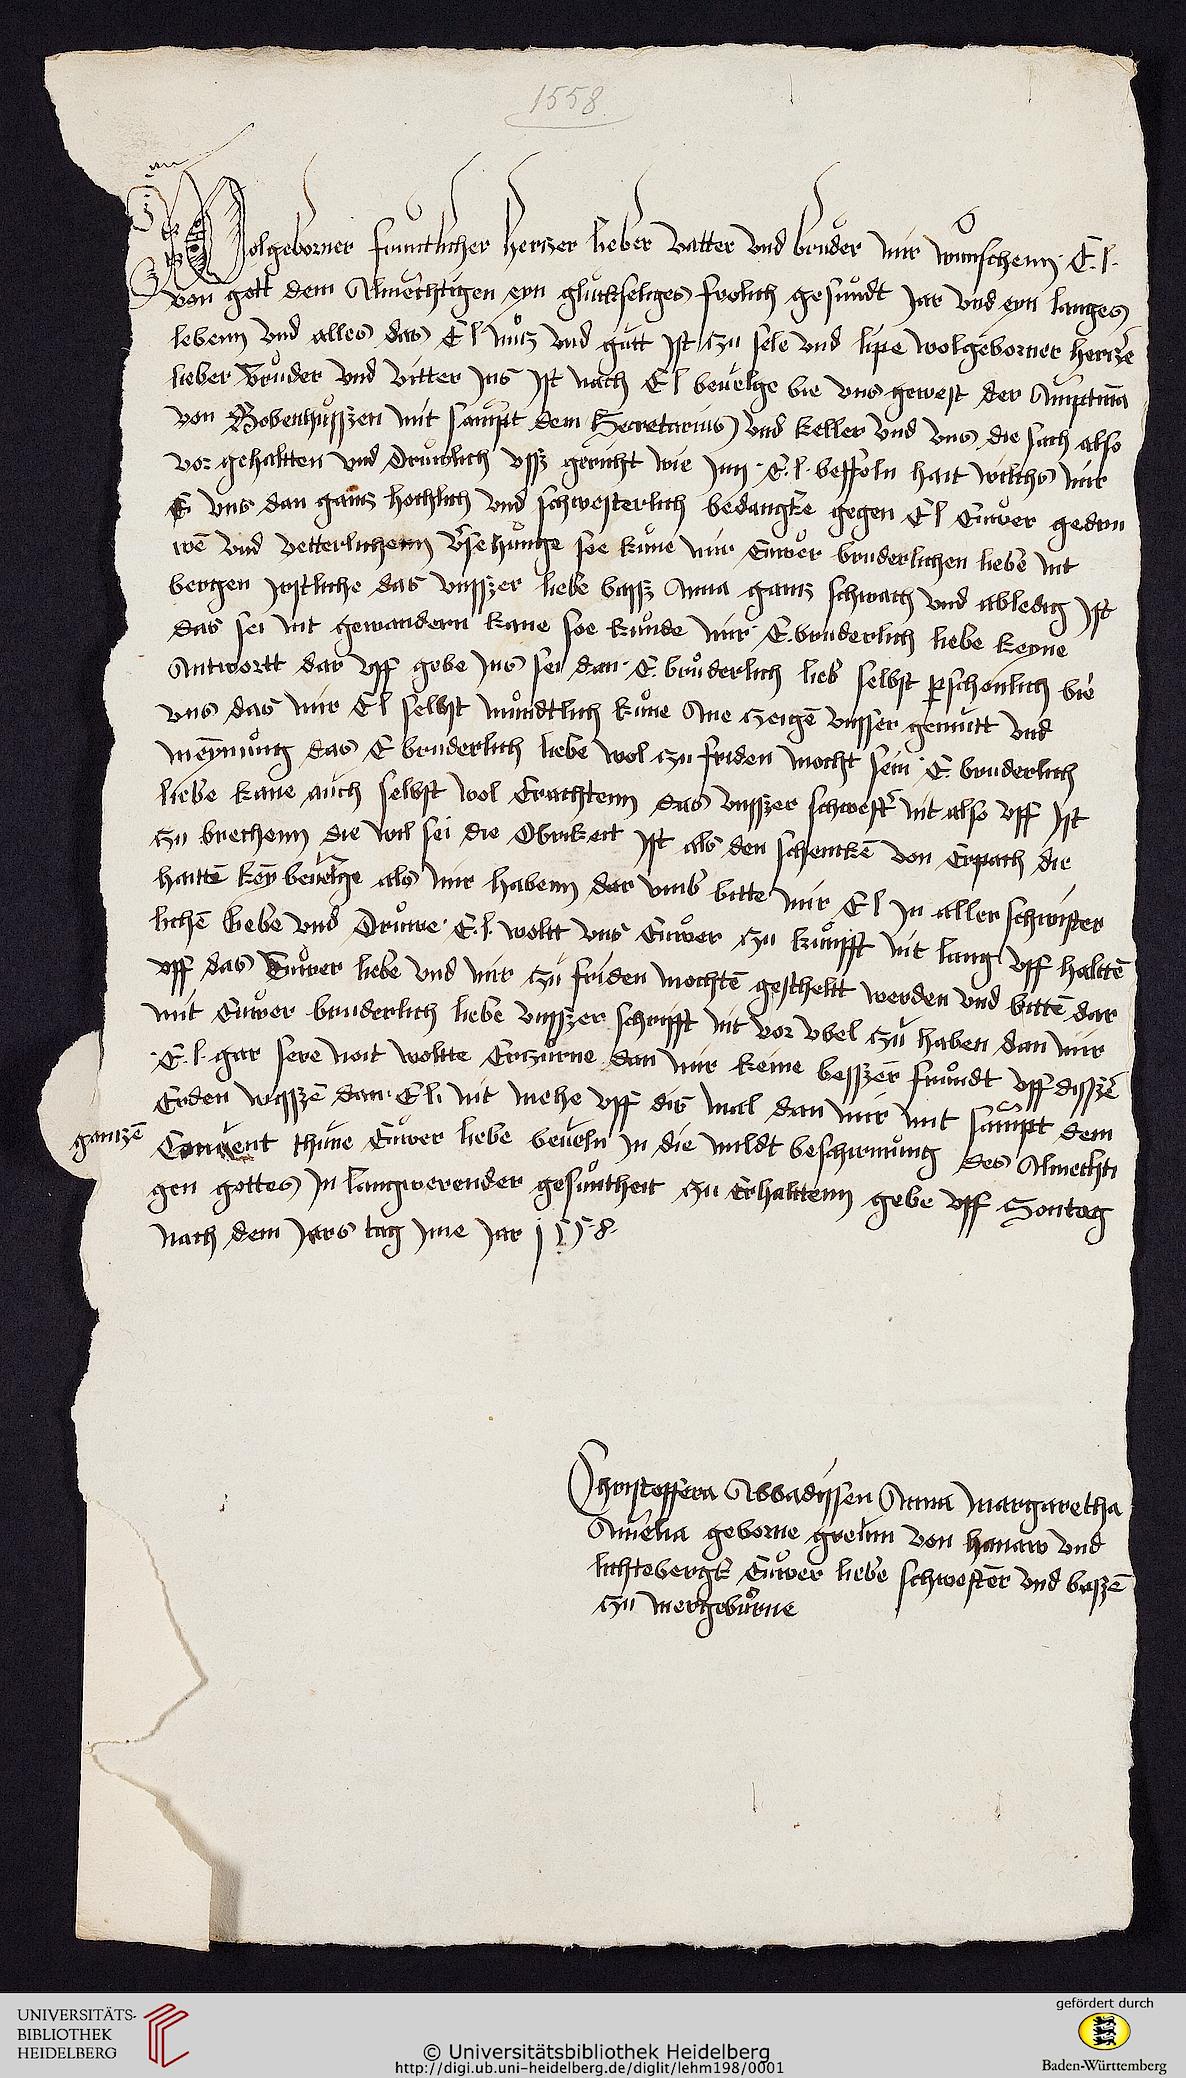 1558.
Wolgeborner fruntlicher hertzer lieber vatter und bruder mir wunschenn E. l.
von gott dem Almechtigen eyn gluckseliges frolich gesundt Jar und eyn langes
lebenn und alles das E l nutz und gutt ist zu sele und lipe wolgeborner hertze
lieber bruder und vitter Ins ist nach E l bevelge bie uns gewest der Amptma
von Bobenhusszen mit sampt dem Secretarius und keller und uns die sach also
vor gehaltten und Druwlich uff gericht wie Inn E. l. beffoln hait wilchs mir
uns dan gantz hochlich und schwesterlich bedangke gegen E l Euwer gedru
we und vetterlichenn vsehunge soe kune mir Euwer bruderlichen liebe nit
bergen das unsszer liebe bassz Anna gantz schwach und abledig ist
das sei nit gewandern kane soe kunde mir E. bruderlich liebe keyne
Antwortt dar uff gebe Ins sei dan E. bruderlich lieb selbst pschonlich bie
uns das mir E l selbst mundtlich kune Ane zeige unsser gemutt und
meynung das E bruderlich liebe wol zu friden mocht sein E. bruderlich
liebe kane auch selbst wol Erachtenn das unsszer schwest nit also uff ist
zu brechenn die wil sei die Obrikeit ist als den schencke von Erpach die
hatte key bevelge als mir habenn dar umb bitte mir E l In aller schwister
liche liebe und Druwe E. l. woltt uns Euwer zu kunfft nit lang uff haltte
uff das Euwer liebe und mir zu friden mochte gescheltt werden und bitte dar
mit Euwer bruderlich liebe unsszer schrifft nit vor ubel zu haben dan mir
E. l. gar sere noit woltte Erzurne dan mir keine besszer frundt uff dissze
Erden wissze dan E l. nit mehe uff dis mal dan mir mit sampt dem
gantze
Convent thune Euwer liebe beveln In die mildt beschirmung des Almechti
gen gottes In langwerender gesuntheit zu Erhalttenn gebe uff Sontag
nach dem Jars tag Ime Jar 1558
Christoffera Abbadissen Anna Margaretha
Amelia geborne grefin von hanaw und
lichtebergk Euwer liebe schwester und basze
zu mergeburne
UNIVERSITÄTS-
BIBLIOTHEK
HEIDELBERG
© Universitätsbibliothek Heidelberg
http://digi.ub.uni-heidelberg.de/diglit/lehm198/0001
gefördert durch
Baden-Württemberg